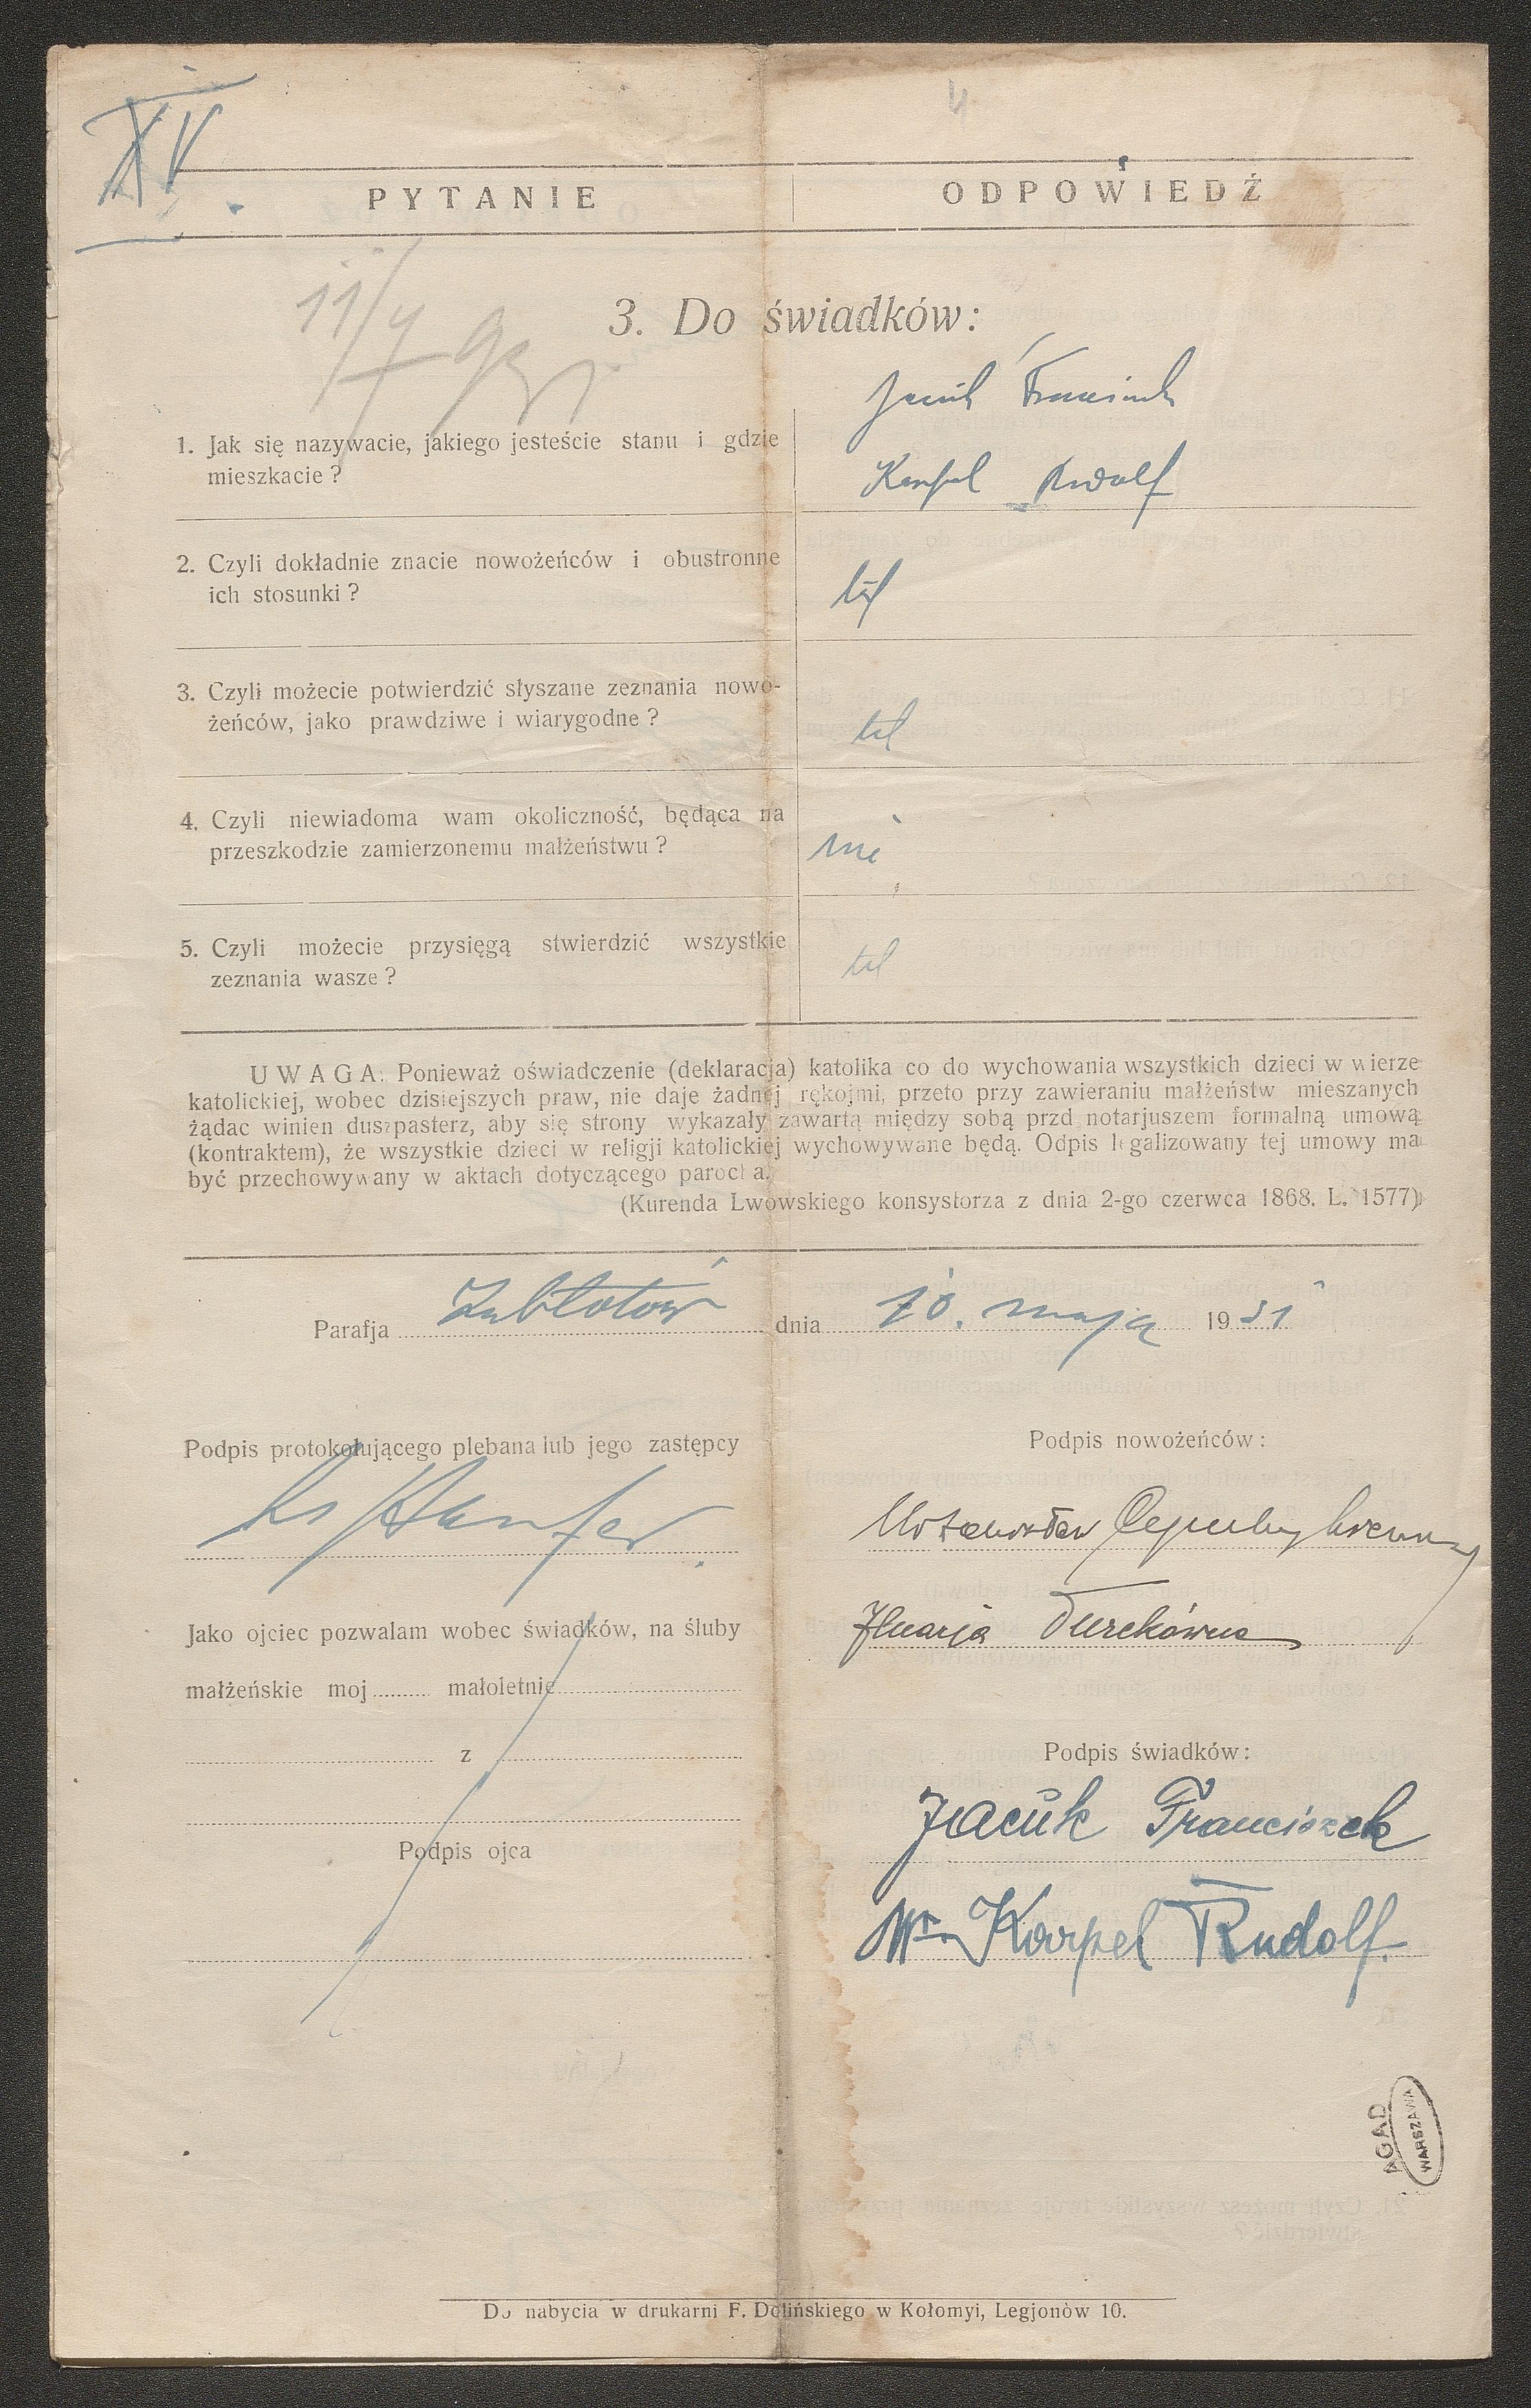 XV.
PYTANIE
ODPOWIEDŹ
11/4
3. Do świadków:
Jacuk Franciszek
1. Jak się nazywacie, jakiego jesteście stanu i gdzie
mieszkacie?
Karpel Rudolf
2. Czyli dokładnie znacie nowożeńców i obustronne
ich stosunki?
tak
3. Czyli możecie potwierdzić słyszane zeznania nowo-
żeńców, jako prawdziwe i wiarygodne?
tak
4. Czyli niewiadoma wam okoliczność, będąca na
przeszkodzie zamierzonemu małżeństwu?
nie
5. Czyli możecie przysięgą stwierdzić wszystkie
zeznania wasze?
tak
UWAGA: Ponieważ oświadczenie (deklaracja) katolika co do wychowania wszystkich dzieci w wierze
katolickiej, wobec dzisiejszych praw, nie daje żadnej rękojmi, przeto przy zawieraniu małżeństw mieszanych
żądac winien duszpasterz, aby się strony wykazały zawartą między sobą przd notarjuszem formalną umową
(kontraktem), że wszystkie dzieci w religji katolickiej wychowywane będą. Odpis legalizowany tej umowy ma
być przechowywany w aktach dotyczącego parocha.
(Kurenda Lwowskiego konsystorza z dnia 2-go czerwca 1868. L. 1577)
Parafja Zabłotów dnia 10. maja 1931
Podpis protokołującego plebana lub jego zastępcy
Podpis nowożeńców:
Ks
Jako ojciec pozwalam wobec świadków, na śluby
Marja Turekówna
małżeńskie moj małoletnie
z
Podpis świadków:
Jacuk Franciszek
Podpis ojca
Karpel Rudolf.
AGAD
WARSZAWA
Do nabycia w drukarni F. Dolińskiego w Kołomyi, Legjonów 10.